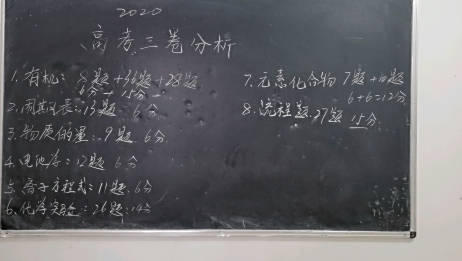 2020
高考三卷分析
1.有机:8题+36题+28题
6分 15分
2.周其元表:13题:6分
3.物质的量:9题 6分
4.电池序:12题 6分
5.离子方程式:11题.6分
6.化学实验:26题:14分
7.元素化合物 7题+10题
6+6=12分
8.流程题 27题 15分